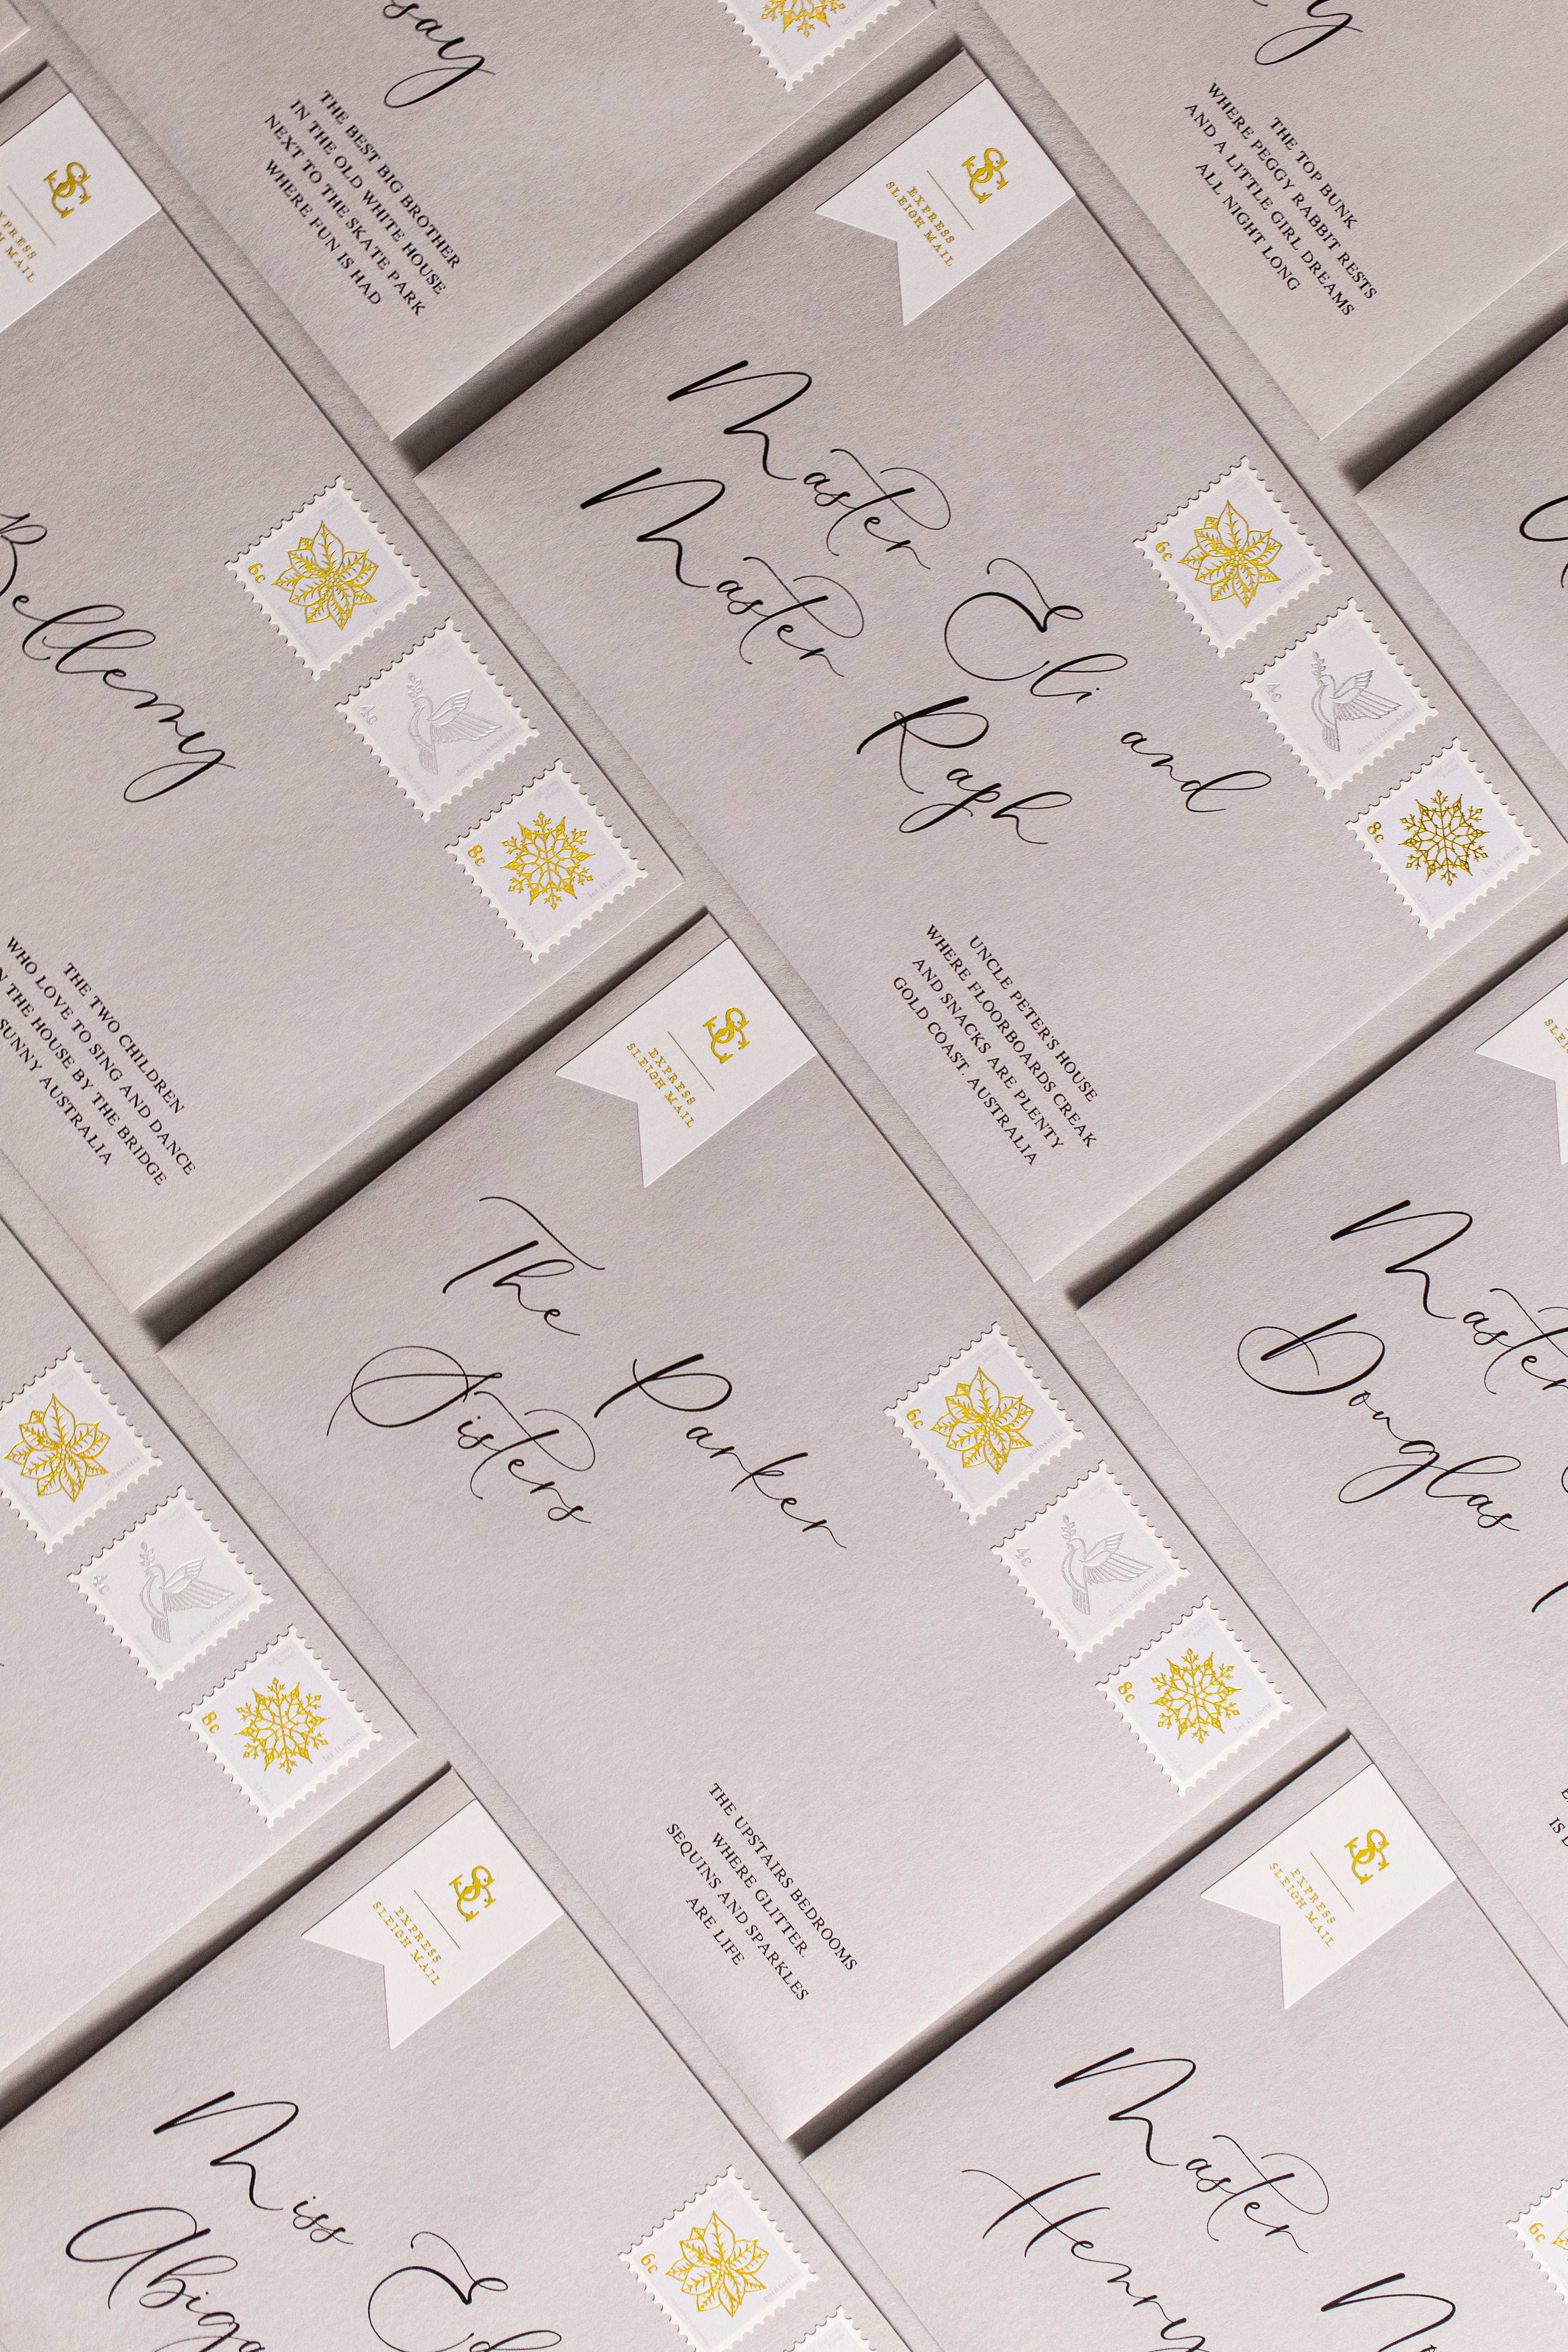 THE BEST BIG BROTHER
IN THE OLD WHITE HOUSE
NEXT TO THE SKATE PARK
WHERE FUN IS HAD
THE TOP BUNK
WHERE PEGGY RABBIT RESTS
AND A LITTLE GIRL DREAMS
ALL NIGHT LONG
SC
EXPRESS
SLEIGH MAIL
Bellemy
6c
4c
8c
let it snow
THE TWO CHILDREN
WHO LOVE TO SING AND DANCE
THE HOUSE BY THE BRIDGE
SUNNY AUSTRALIA
SC
EXPRESS
SLEIGH MAIL
Master Eli and
Master Raph
6c
4c
8c
let it snow
UNCLE PETER'S HOUSE
WHERE FLOORBOARDS CREAK
AND SNACKS ARE PLENTY
GOLD COAST. AUSTRALIA
6c
4c
8c
let it snow
SC
EXPRESS
SLEIGH MAIL
The Parker
Sisters
6c
poinsettia
4c
8c
let it snow
THE UPSTAIRS BEDROOMS
WHERE GLITTER.
SEQUINS AND SPARKLES
ARE LIFE
Master
Douglas
SC
EXPRESS
SLEIGH MAIL
Miss
6c
SC
EXPRESS
SLEIGH MAIL
Master
Henry
6c